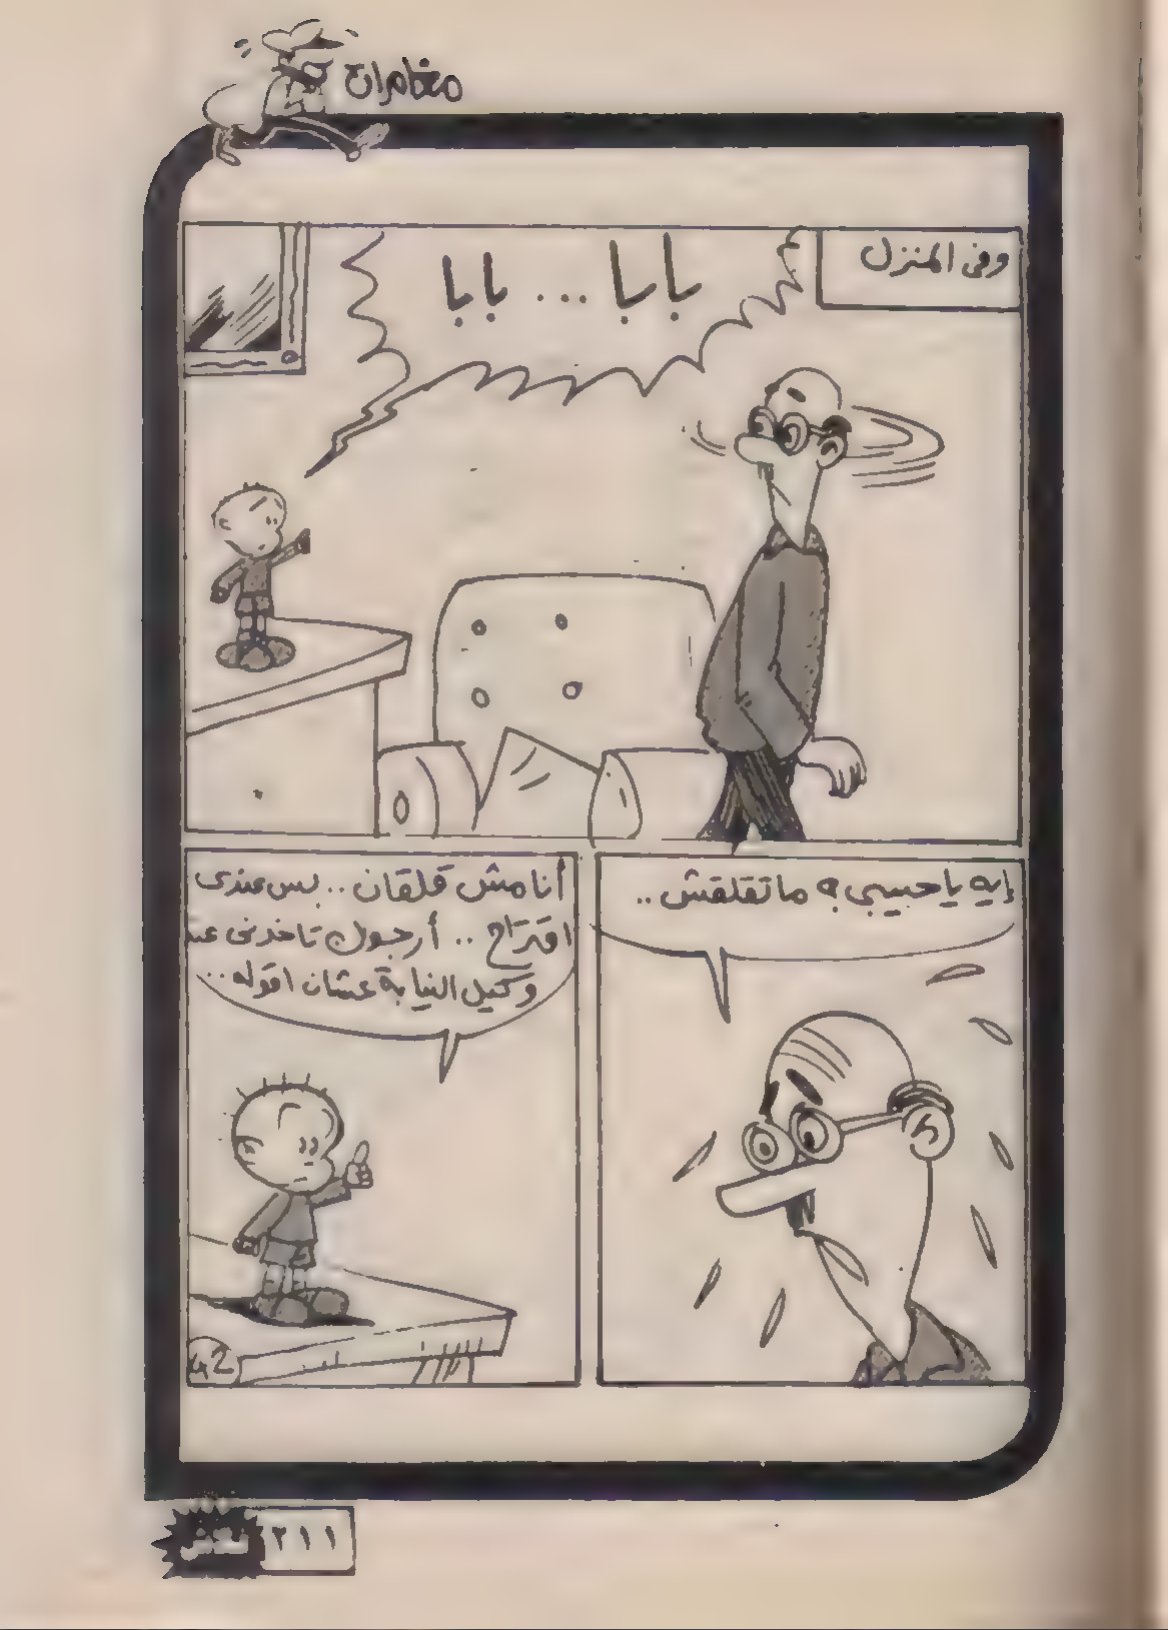 مغامرات
وفى المنزل
بابا ... بابا
إيه يا حبيبى ؟ ماتقلقش ..
أنا مش قلقان .. بس عندى
اقتراح .. أرجوك تاخدنى عند
وكيل النيابة عشان اقوله ..
42
٢١١
فلاش